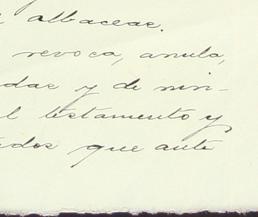 albaceas.
revoca, anula,
das y de nin-
l testamento y
dos que ante